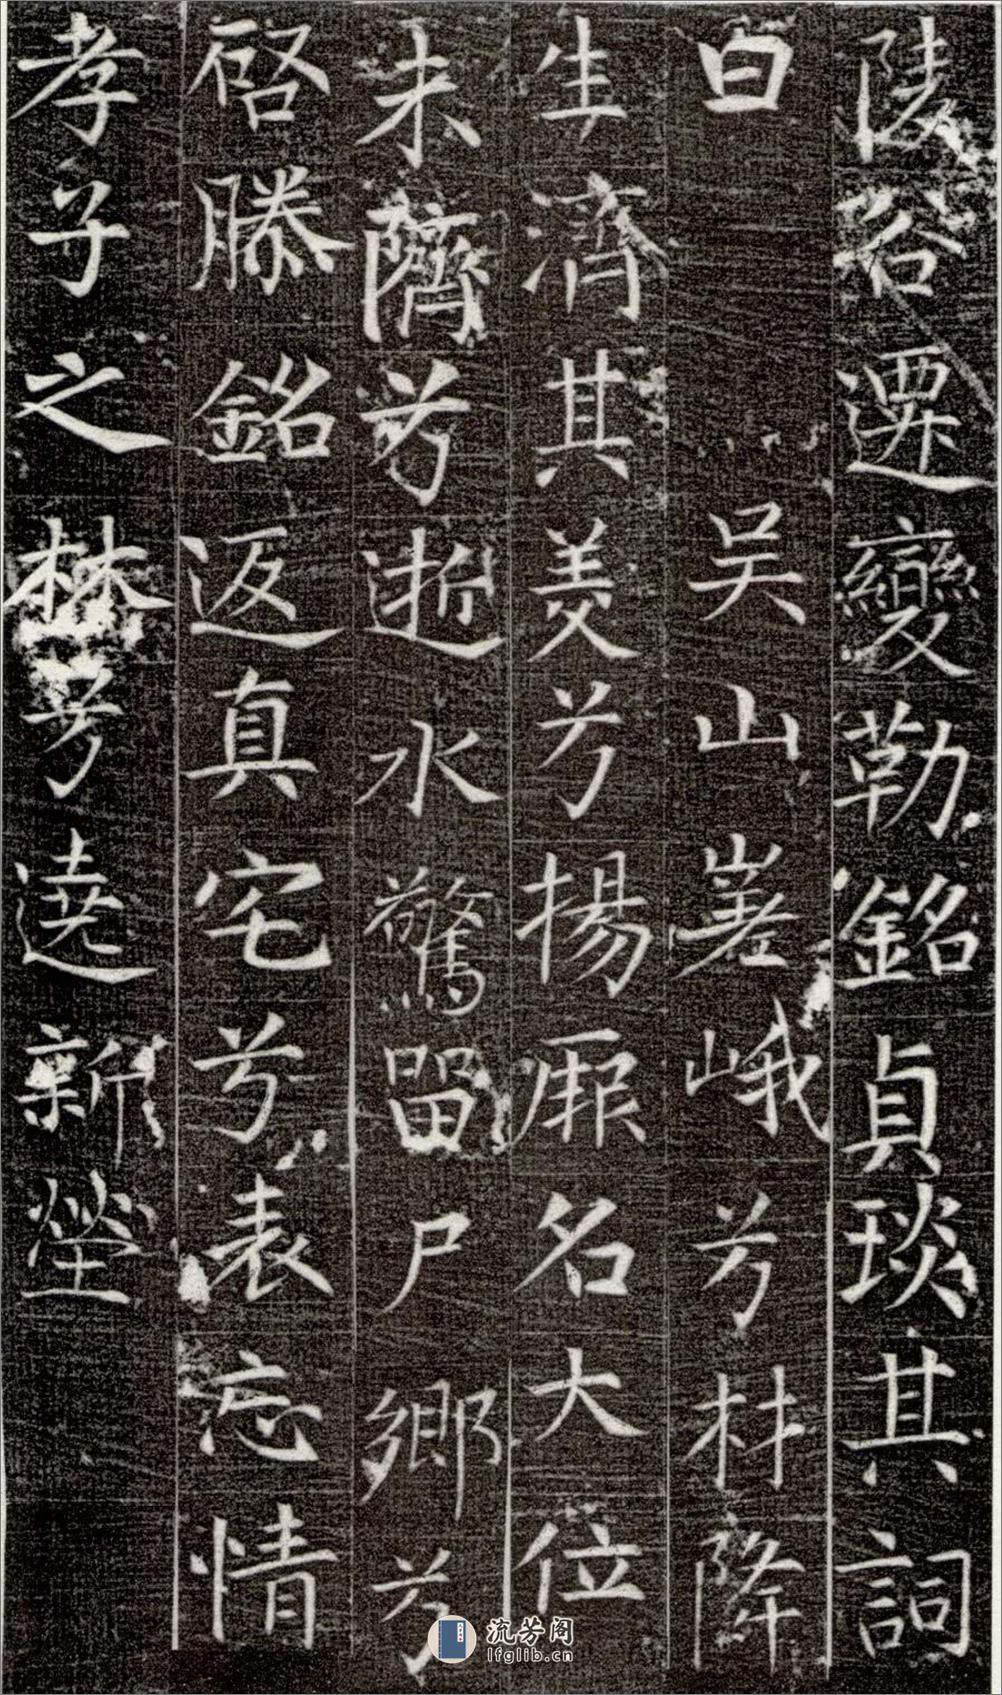 陵谷遷變勒銘貞琰其詞
曰吳山嵳峨兮材降
生濟其美兮揚厥名大位
未隮兮逝水驚留尸鄉兮
啓滕銘返真宅兮表忘情
孝子之林兮遶新塋
流芳阁
lfglib.cn